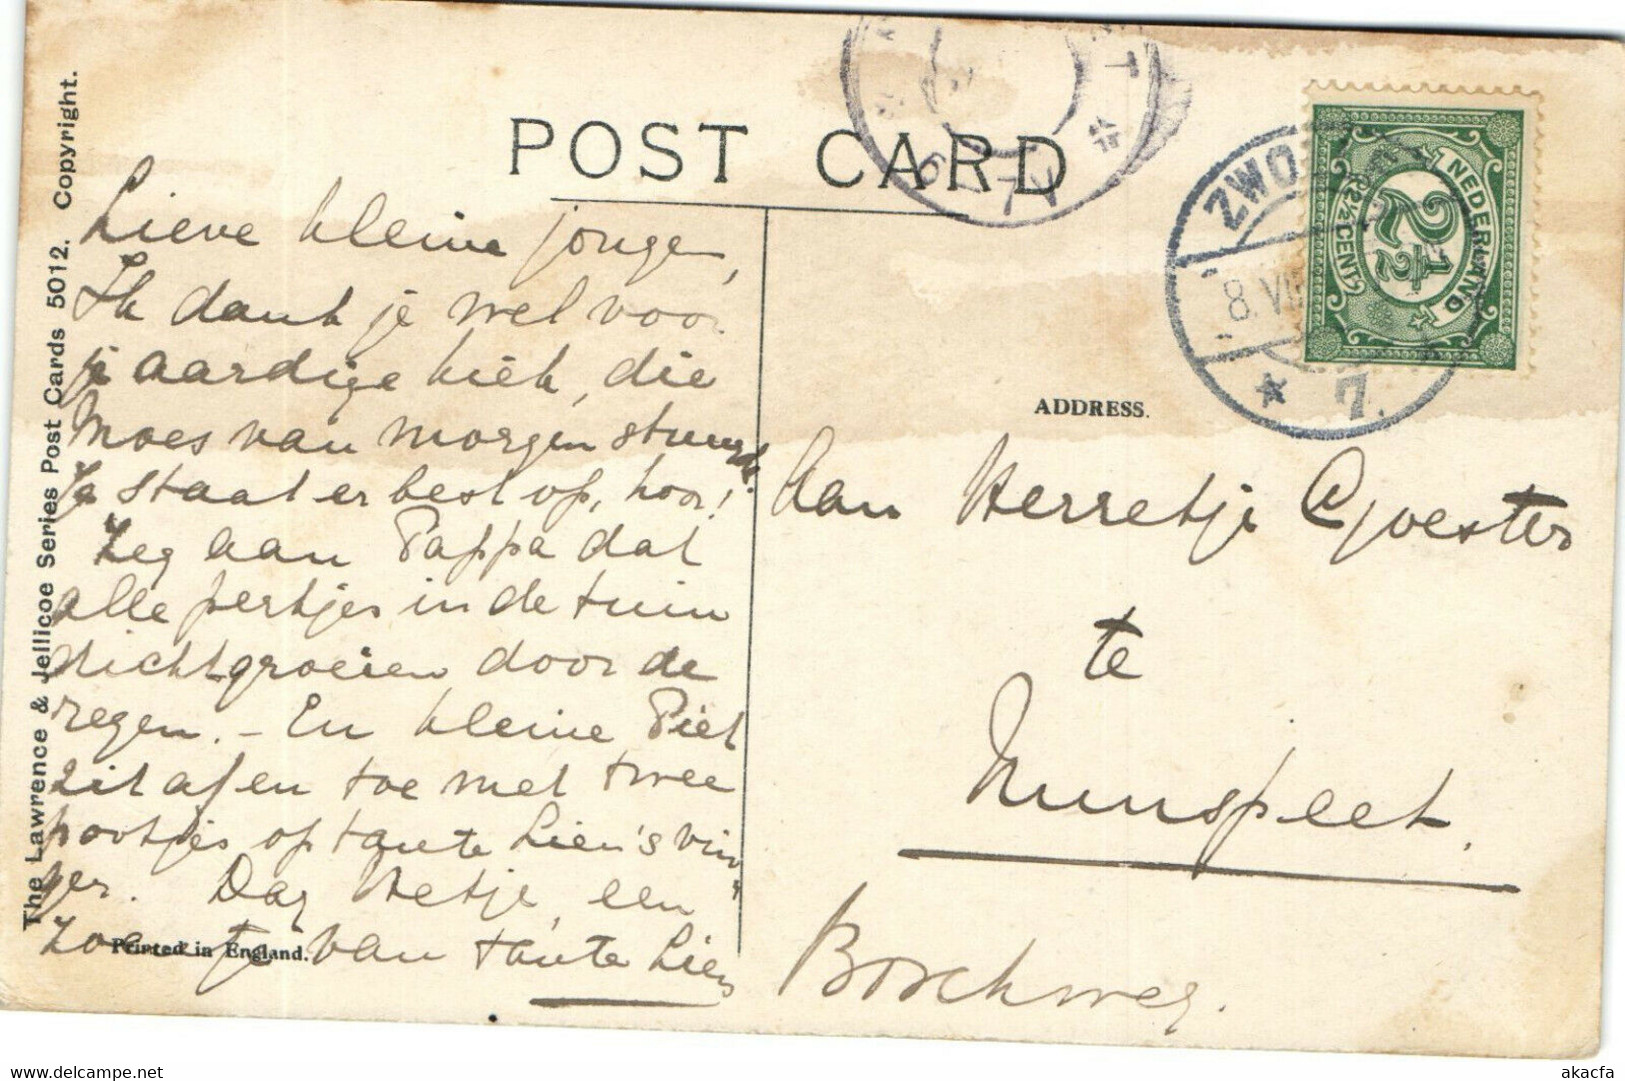 POST CARD
The Lawrence & Jellicoe Series Post Cards 5012. Copyright.
Lieve kleine jongen,
Ik dank je wel voor
je aardige kiek, die
Moes van morgen stuurde.
Je staat er best op, hoor!
Zeg aan Pappa dat
alle perkjes in de tuin
dichtgroeien door de
regen. - En kleine Piet
zit af en toe met twee
pootjes op tante Lien's vin
ger. Dag Hetje, een
zoentje van tante Lien
Printed in England.
ZWO
8. VII
7.
NEDERLAND
2½
2½ CENT
ADDRESS.
Aan Herretje
te
Nunspeet.
akacfa